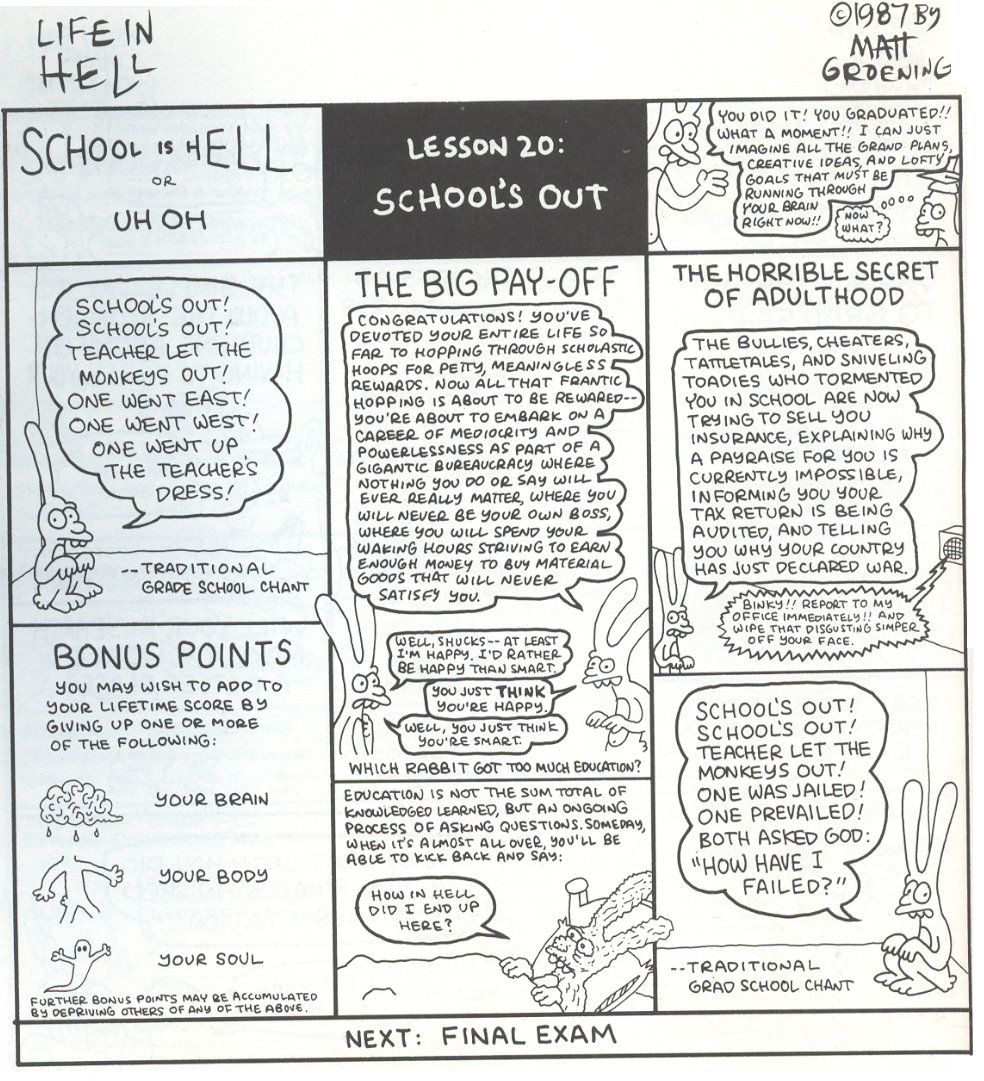 LIFE IN
HELL
©1987 BY
MATT
GROENING
SCHOOL IS HELL
OR
UH OH
LESSON 20:
SCHOOL'S OUT
YOU DID IT! YOU GRADUATED!!
WHAT A MOMENT!! I CAN JUST
IMAGINE ALL THE GRAND PLANS,
CREATIVE IDEAS, AND LOFTY
GOALS THAT MUST BE
RUNNING THROUGH
YOUR BRAIN
RIGHT NOW!!
NOW
WHAT?
SCHOOL'S OUT!
SCHOOL'S OUT!
TEACHER LET THE
MONKEYS OUT!
ONE WENT EAST!
ONE WENT WEST!
ONE WENT UP
THE TEACHER'S
DRESS!
--TRADITIONAL
GRADE SCHOOL CHANT
THE BIG PAY-OFF
CONGRATULATIONS! YOU'VE
DEVOTED YOUR ENTIRE LIFE SO
FAR TO HOPPING THROUGH SCHOLASTIC
HOOPS FOR PETTY, MEANINGLESS
REWARDS. NOW ALL THAT FRANTIC
HOPPING IS ABOUT TO BE REWARDED--
YOU'RE ABOUT TO EMBARK ON A
CAREER OF MEDIOCRITY AND
POWERLESSNESS AS PART OF A
GIGANTIC BUREAUCRACY WHERE
NOTHING YOU DO OR SAY WILL
EVER REALLY MATTER, WHERE YOU
WILL NEVER BE YOUR OWN BOSS,
WHERE YOU WILL SPEND YOUR
WAKING HOURS STRIVING TO EARN
ENOUGH MONEY TO BUY MATERIAL
GOODS THAT WILL NEVER
SATISFY YOU.
WELL, SHUCKS-- AT LEAST
I'M HAPPY. I'D RATHER
BE HAPPY THAN SMART.
YOU JUST THINK
YOU'RE HAPPY.
WELL, YOU JUST THINK
YOU'RE SMART.
WHICH RABBIT GOT TOO MUCH EDUCATION?
THE HORRIBLE SECRET
OF ADULTHOOD
THE BULLIES, CHEATERS,
TATTLETALES, AND SNIVELING
TOADIES WHO TORMENTED
YOU IN SCHOOL ARE NOW
TRYING TO SELL YOU
INSURANCE, EXPLAINING WHY
A PAYRAISE FOR YOU IS
CURRENTLY IMPOSSIBLE,
INFORMING YOU YOUR
TAX RETURN IS BEING
AUDITED, AND TELLING
YOU WHY YOUR COUNTRY
HAS JUST DECLARED WAR.
BINKY!! REPORT TO MY
OFFICE IMMEDIATELY!! AND
WIPE THAT DISGUSTING SIMPER
OFF YOUR FACE.
BONUS POINTS
YOU MAY WISH TO ADD TO
YOUR LIFETIME SCORE BY
GIVING UP ONE OR MORE
OF THE FOLLOWING:
YOUR BRAIN
YOUR BODY
YOUR SOUL
FURTHER BONUS POINTS MAY BE ACCUMULATED
BY DEPRIVING OTHERS OF ANY OF THE ABOVE.
EDUCATION IS NOT THE SUM TOTAL OF
KNOWLEDGED LEARNED, BUT AN ONGOING
PROCESS OF ASKING QUESTIONS. SOMEDAY,
WHEN IT'S ALMOST ALL OVER, YOU'LL BE
ABLE TO KICK BACK AND SAY:
HOW IN HELL
DID I END UP
HERE?
SCHOOL'S OUT!
SCHOOL'S OUT!
TEACHER LET THE
MONKEYS OUT!
ONE WAS JAILED!
ONE PREVAILED!
BOTH ASKED GOD:
"HOW HAVE I
FAILED?"
--TRADITIONAL
GRAD SCHOOL CHANT
NEXT: FINAL EXAM